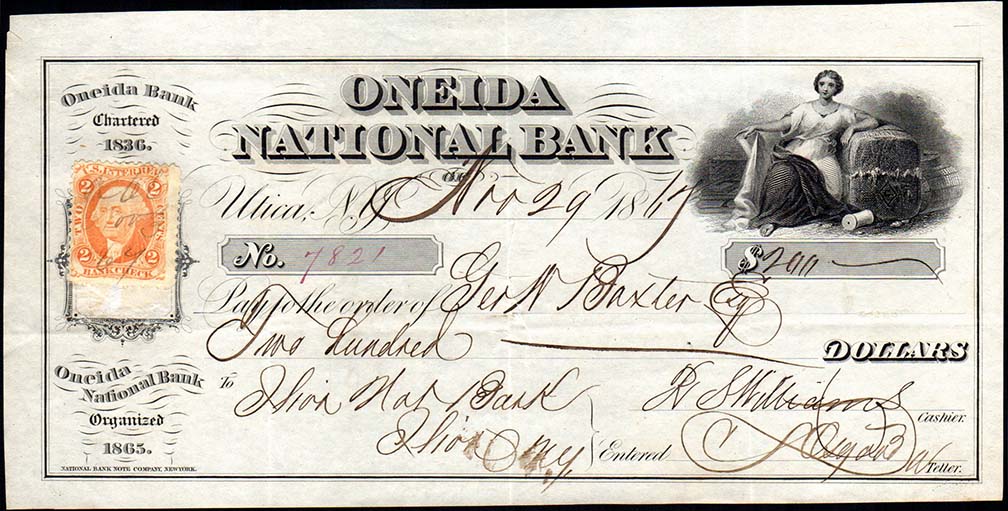 Oneida Bank
Chartered
1836.
U.S. INTER. REV.
2 2
TWO CENTS
2 2
BANK CHECK
Oneida
National Bank
Organized
1865.
NATIONAL BANK NOTE COMPANY, NEW YORK.
ONEIDA
NATIONAL BANK
Utica, N.Y. Nov 29 1867
No. 7821
$200
Pay to the order of Geo W Baxter Esq
Two hundred DOLLARS
To Ilion Nat Bank
Ilion
D S Williams Cashier.
Entered Teller.